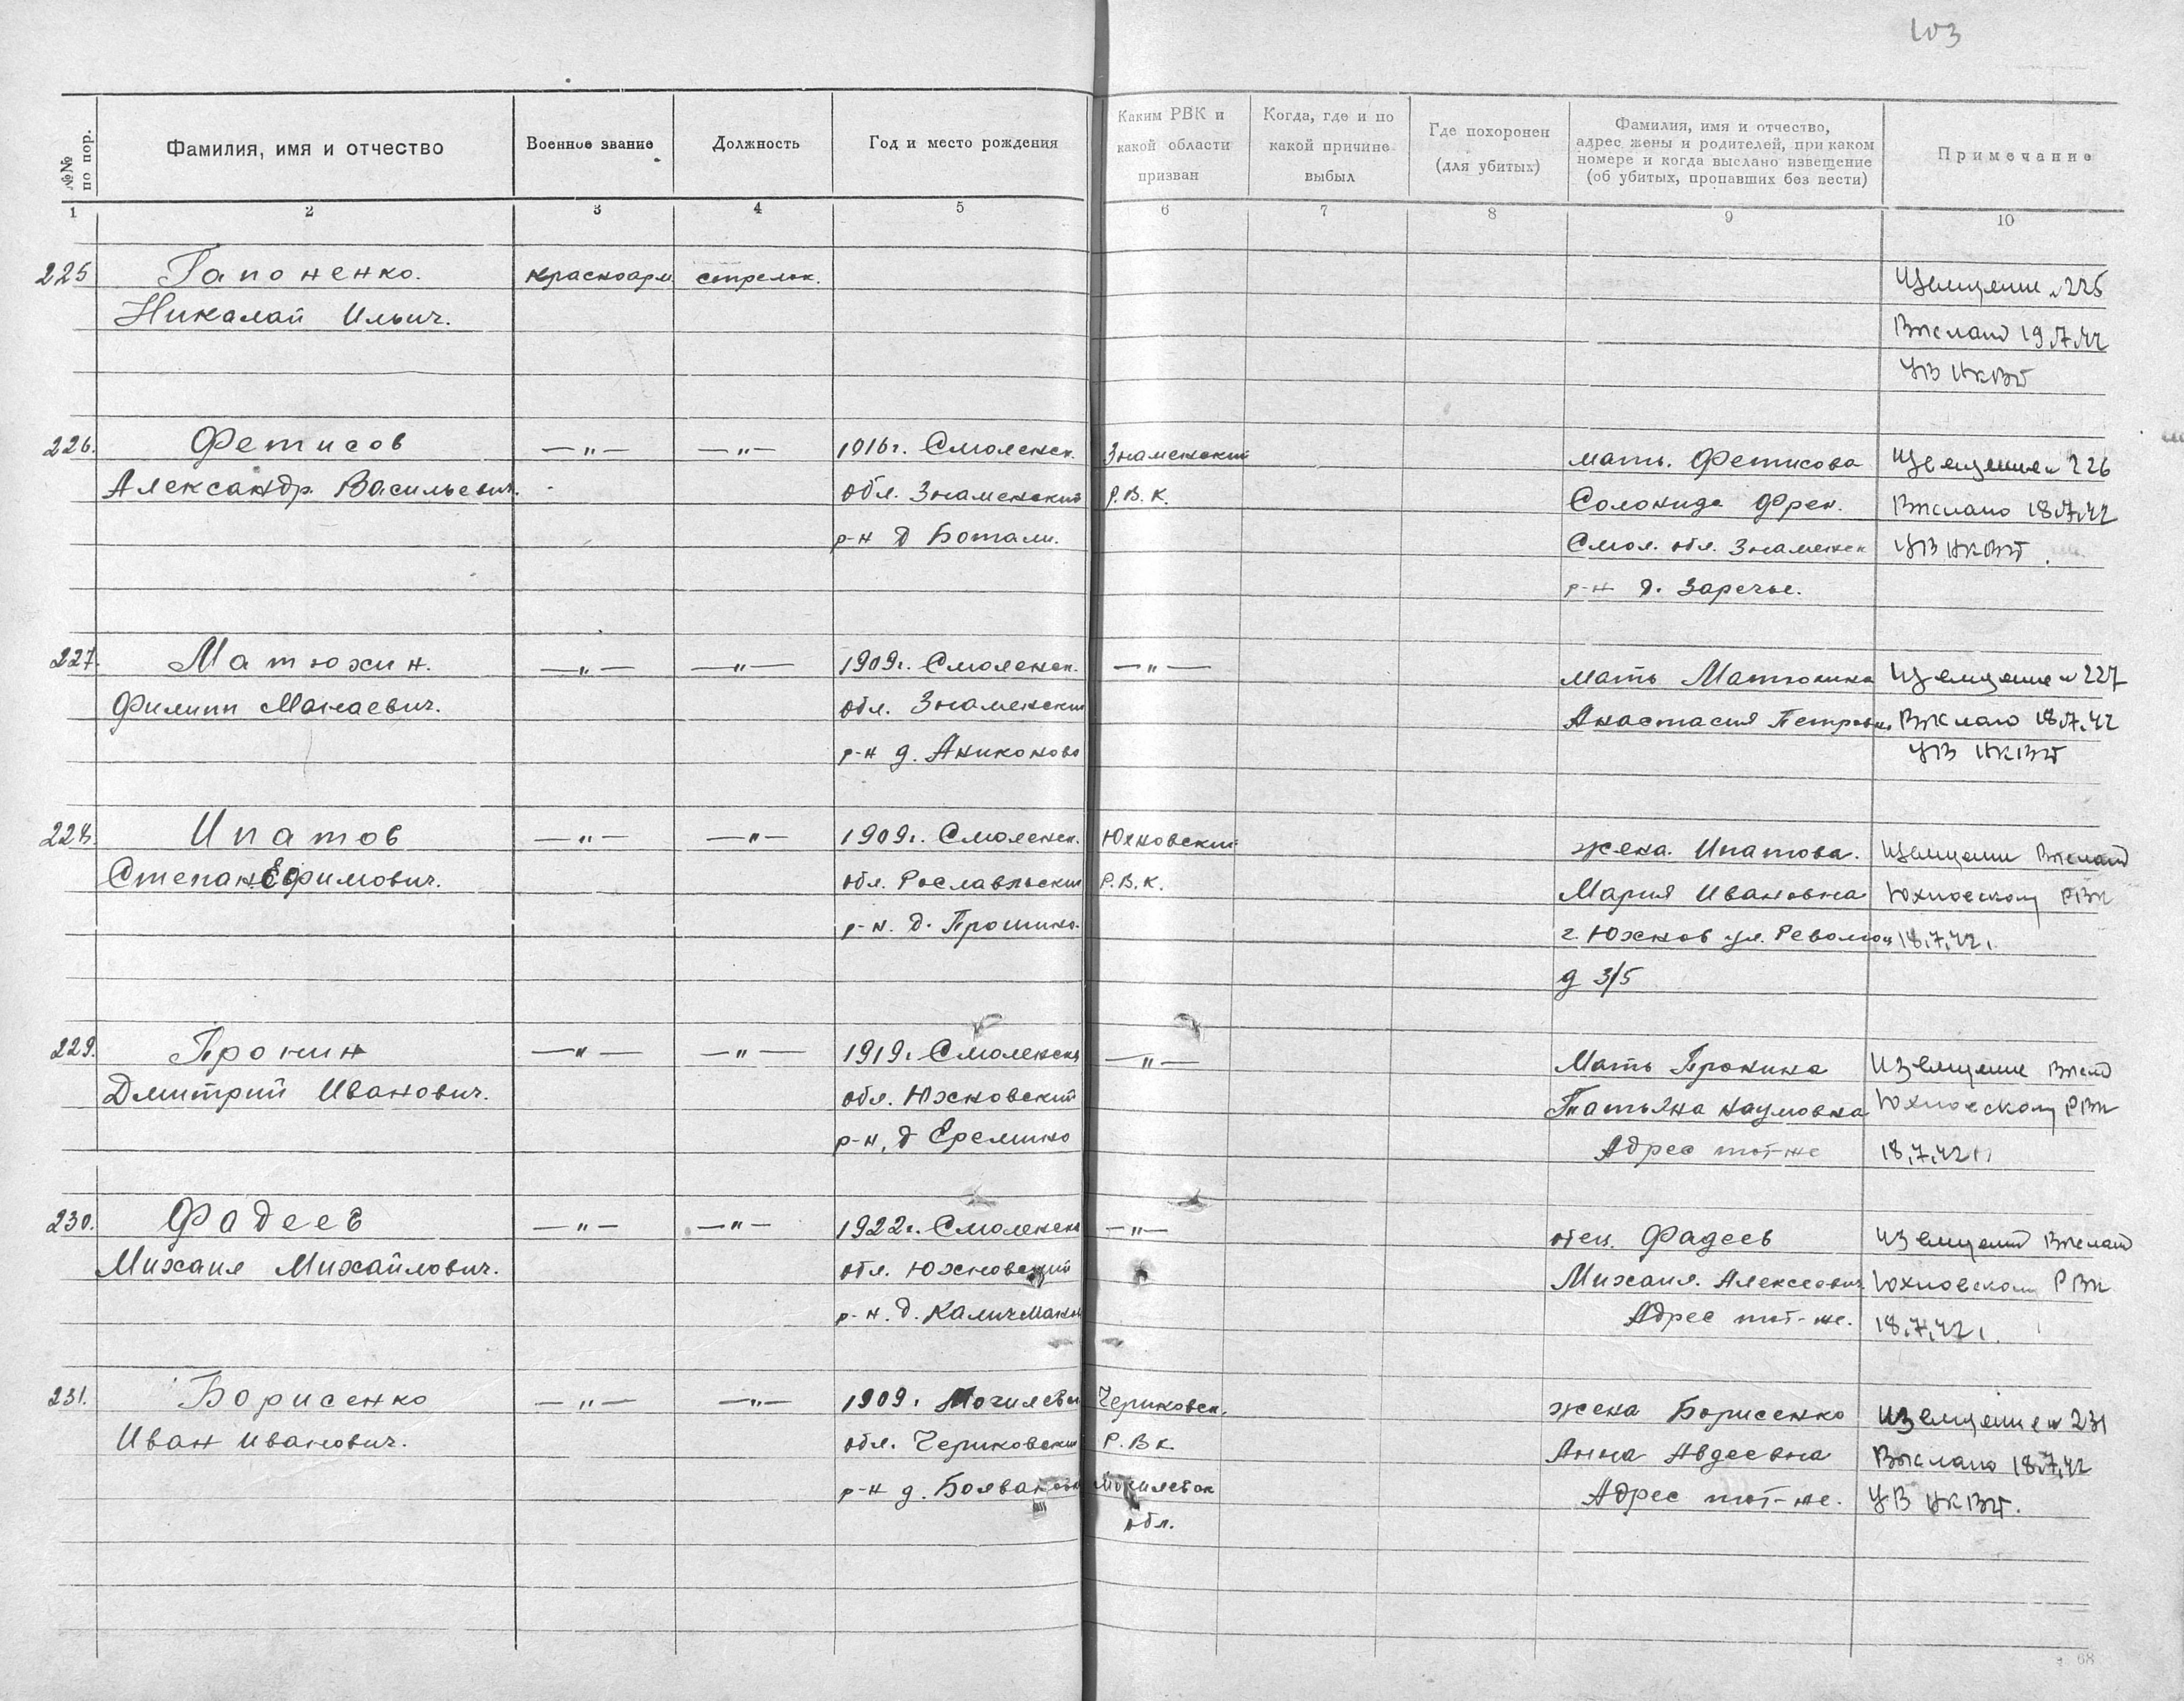 103
№№ по пор.
Фамилия, имя и отчество
Военное звание
Должность
Год и место рождения
Каким РВК и
какой области
призван
Когда, где и по
какой причине
выбыл
Где похоронен
(для убитых)
Фамилия, имя и отчество,
адрес жены и родителей, при каком
номере и когда выслано извещение
(об убитых, пропавших без вести)
Примечание
1 2 3 4 5 6 7 8 9 10
225 Гапоненко. красноарм. стрелок.
Николай Ильич.
Извещение №225
Выслано 19.7.42
УВ НКВД
226. Фетисов —"— —"— 1916г. Смоленск. Знаменский мать. Фетисова Извещение № 226
Александр Васильевич. обл. Знаменский Р.В.К. Солонида Френ. Выслано 18.7.42
р-н д Ботали. Смол. обл. Знаменск УВ НКВД.
р-н д. Заречье.
227. Матюхин. —"— —"— 1909г. Смоленск. —"— мать Матюхина Извещение №227
Филипп Манаевич. обл. Знаменский Анастасия Петровна Выслано 18.7.42
р-н д. Аниконово УВ НКВД
228. Ипатов —"— —"— 1909г. Смоленск. Юхновский жена. Ипатова. Извещение Выслано
Степан Ефимович. обл. Рославльский Р.В.К. Мария Ивановна Юхновскому РВК
р-н. д. Прошино. г. Юхнов ул. Революц 18.7.42г.
д 3/5
229. Пронин —"— —"— 1919г. Смоленска —"— Мать Пронина Извещение Выслано
Дмитрий Иванович. обл. Юхновский Татьяна Наумовна Юхновскому РВК
р-н, д Еремино Адрес тот-же 18.7.42г.
230. Фадеев —"— —"— 1922г. Смоленска —"— отец. Фадеев Извещение Выслано
Михаил Михайлович. обл. Юхновский Михаил. Алексеевич Юхновскому РВК
р-н. д. Адрес тот-же. 18.7.42г.
231. Борисенко —"— —"— 1909г. Могилевск Чериковск. жена Борисенко Извещение № 231
Иван Иванович. обл. Чериковский Р.В.К. Анна Авдеевна Выслано 18.7.42
р-н д. Могилевск Адрес тот-же. УВ НКВД.
обл.